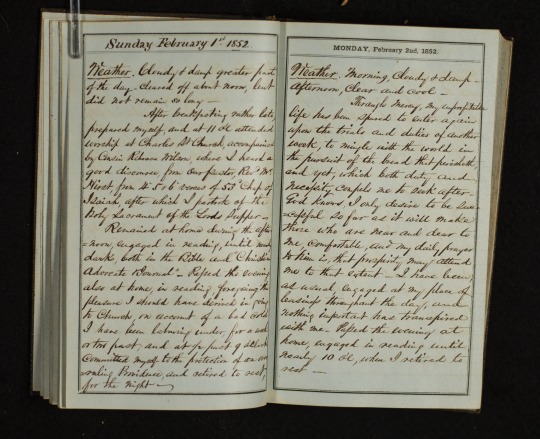 Sunday February 1st 1852.
Weather. Cloudy & damp greater part
of the day. Cleared off about noon, but
did not remain so long —
After breakfasting rather late,
prepared myself, and at 11 oC attended
worship at Charles St Church, accompanied
by Cousin Wilson, where I heard a
good discourse from Our pastor, Revd Mr
from 4. 5 & 6 verses of 53 Chap of
Isaiah, after which I partook of the
Holy Sacrement of the Lords Supper —
Remained at home during the after
-noon, engaged in reading, until nearly
dark, both in the Bible and Christian
Advocate & Journal — Passed the evening
also at home, in reading, foregoing the
pleasure I should have derived in going
to Church, on account of a bad cold
I have been laboring under, for a week
or two past, and at 1/2 past 9 oClock
Committed myself to the protection of an over
-ruling Providence, and retired to rest,
for the night —
MONDAY, February 2nd, 1852.
Weather. Morning, Cloudy & damp —
Afternoon, Clear and cool —
Through mercy, my unprofitable
life has been spared to enter again
upon the trials and duties of another
week, to mingle with the world in
the pursuit of the bread that perisheth
and yet, which both duty and
necessity compels me to seek after —
God knows, I only desire to be suc
-cessful so far as it will make
those who are near and dear to
me, comfortable, and my daily prayer
to him is, that prosperity may attend
me to that extent — I have been,
as usual, engaged at my place of
business throughout the day, and
nothing important has transpired
with me — Passed the evening at
home, engaged in reading until
nearly 10 oC, when I retired to
rest —